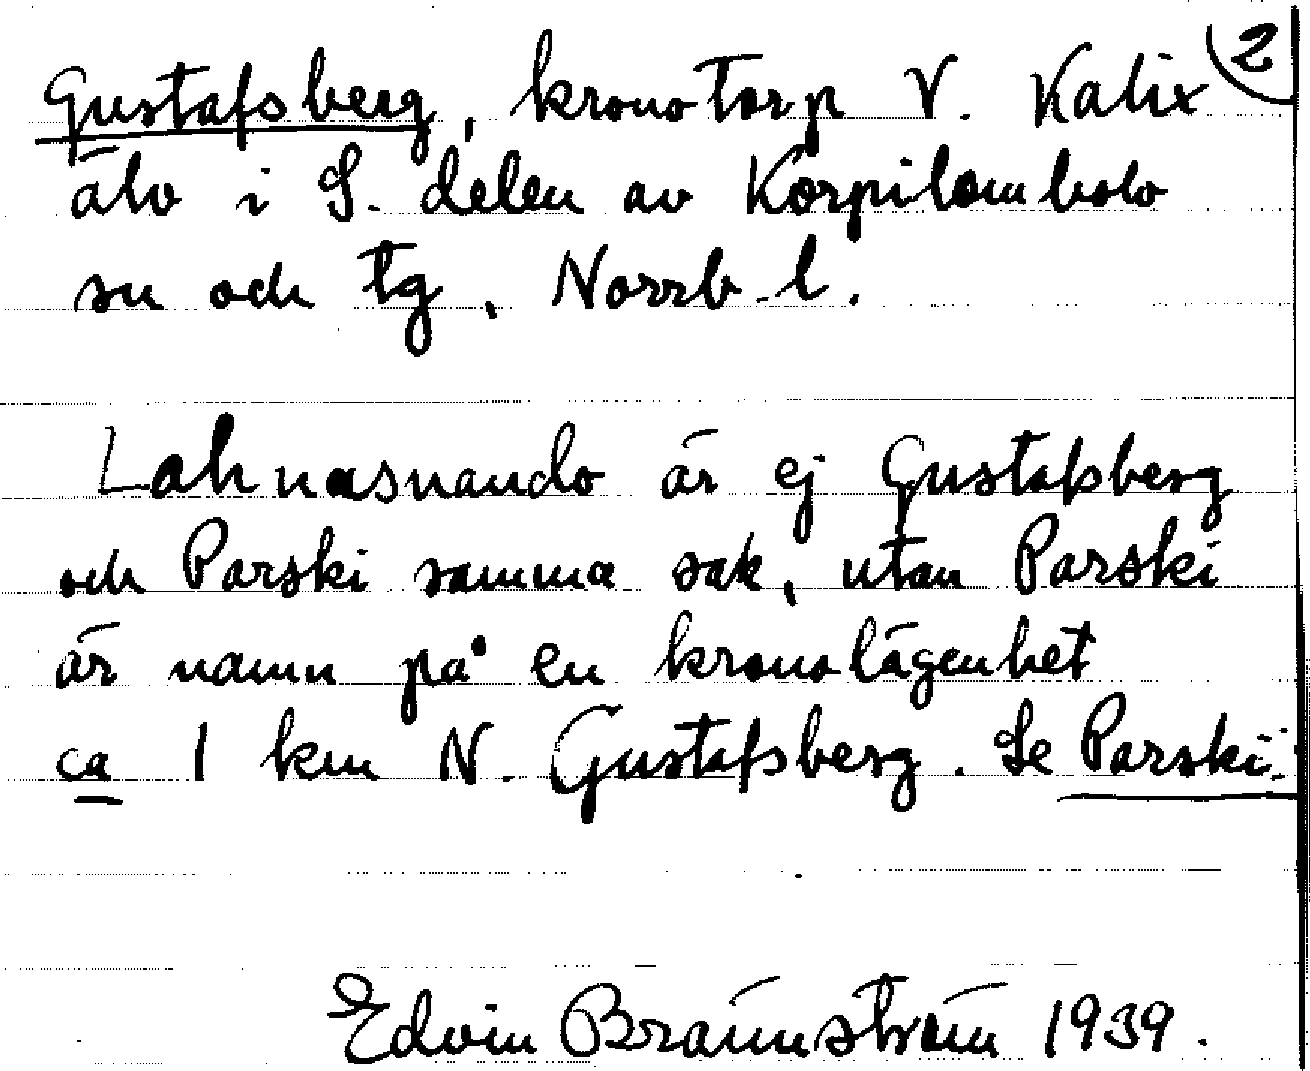 2
Gustafsberg, kronotorp V. Kalix
älv i S. delen av Korpilombolo
sn och tg, Norrb. l.
Lahnasuando är ej Gustafsberg
och Parski samma sak, utan Parski
är namn på en kronolägenhet
ca 1 km N. Gustafsberg. Se Parski.
Edvin Brännström 1939.